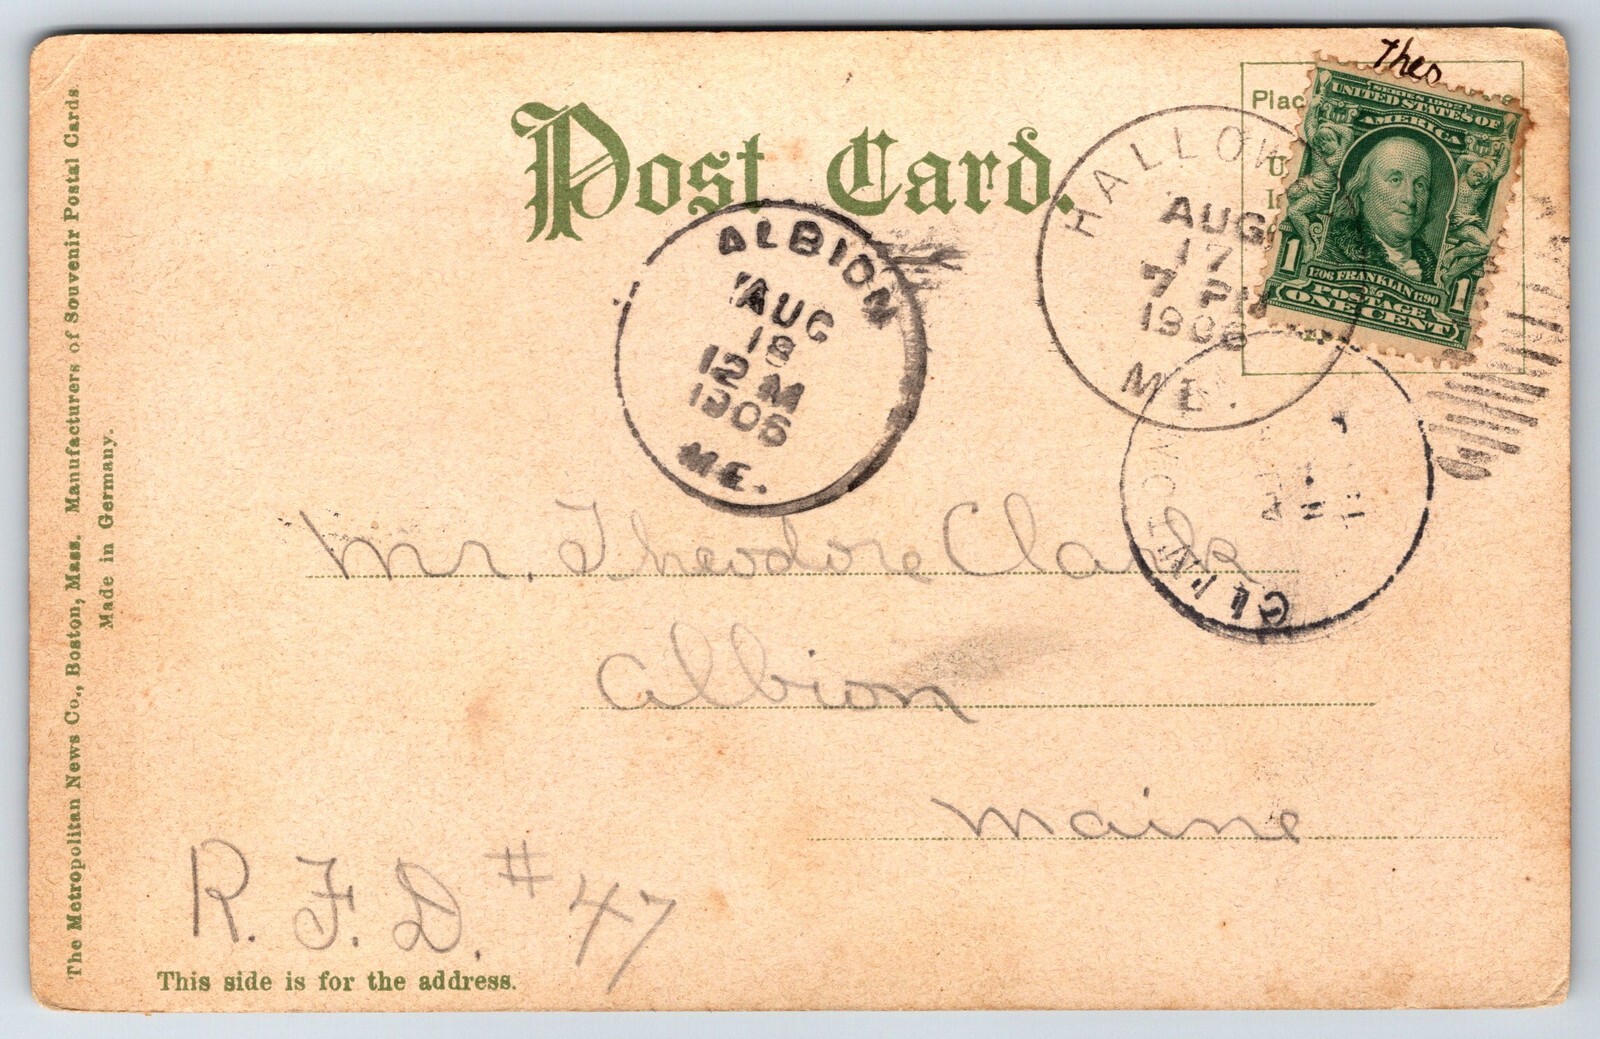 Post Card.
Theo
Plac
SERIES 1902
UNITED STATES OF
AMERICA
1706 FRANKLIN 1790
1 1
POSTAGE
ONE CENT
HALLOW
AUG
17
7 PM
1906
ME.
ALBION
AUG
18
12 M
1906
ME.
Mr. Theodore Clark
Albion
Maine
R. F. D. # 47
This side is for the address.
The Metropolitan News Co., Boston, Mass. Manufacturers of Souvenir Postal Cards
Made in Germany.